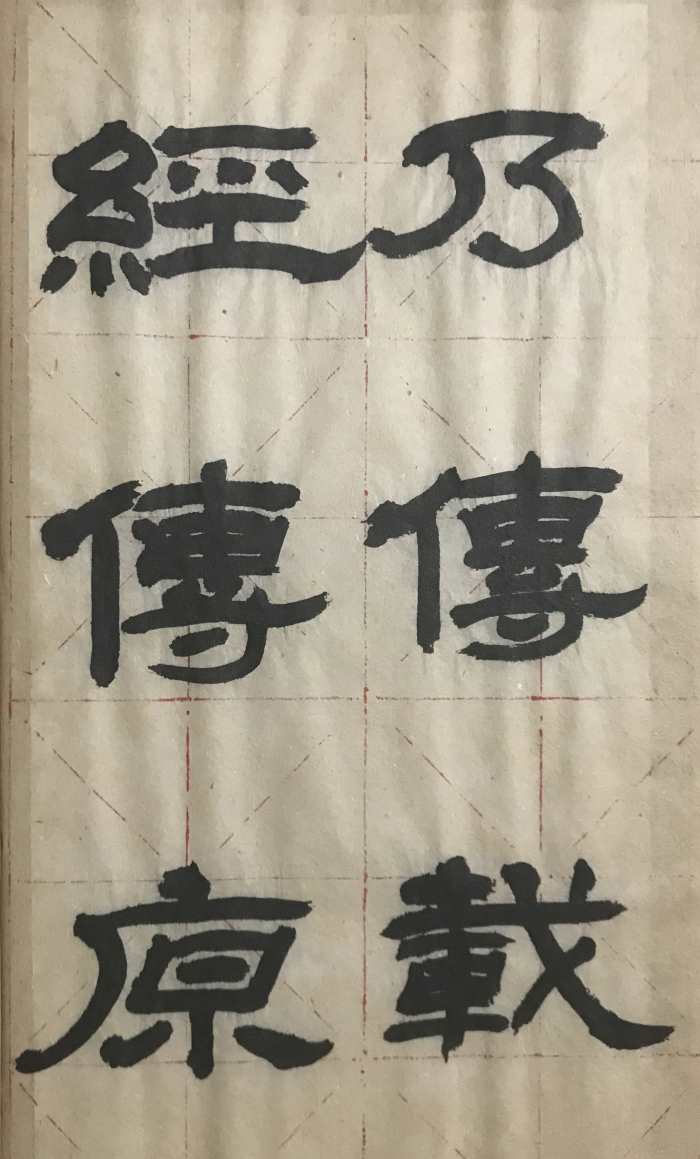 乃傳載
經傳原